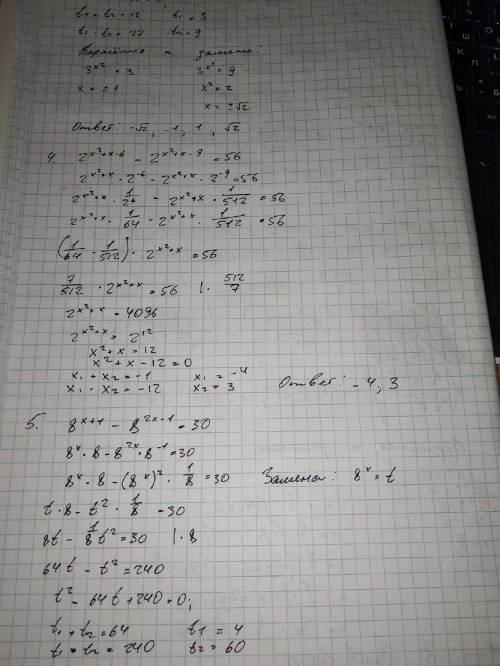 t₁ + t₂ = 12 t₁ = 3
t₁ · t₂ = 27 t₂ = 9
Вернёмся к замене:
3^{x²} = 3 3^{x²} = 9
x = ±1 x² = 2
x = ±√2
Ответ: -√2, -1, 1, √2
4. 2^{x²+x-6} - 2^{x²+x-9} = 56
2^{x²+x} · 2^{-6} - 2^{x²+x} · 2^{-9} = 56
2^{x²+x} · 1/2⁶ - 2^{x²+x} · 1/512 = 56
2^{x²+x} · 1/64 - 2^{x²+x} · 1/512 = 56
(1/64 - 1/512) · 2^{x²+x} = 56
7/512 · 2^{x²+x} = 56 | · 512/7
2^{x²+x} = 4096
2^{x²+x} = 2^{12}
x² + x = 12
x² + x - 12 = 0
x₁ + x₂ = -1 x₁ = -4
x₁ · x₂ = -12 x₂ = 3 Ответ: -4, 3
5. 8^{x+1} - 8^{2x-1} = 30
8^x · 8 - 8^{2x} · 8^{-1} = 30
8^x · 8 - (8^x)² · 1/8 = 30 Замена: 8^x = t
t · 8 - t² · 1/8 = 30
8t - 1/8 t² = 30 | · 8
64t - t² = 240
t² - 64t + 240 = 0;
t₁ + t₂ = 64 t1 = 4
t₁ · t₂ = 240 t₂ = 60